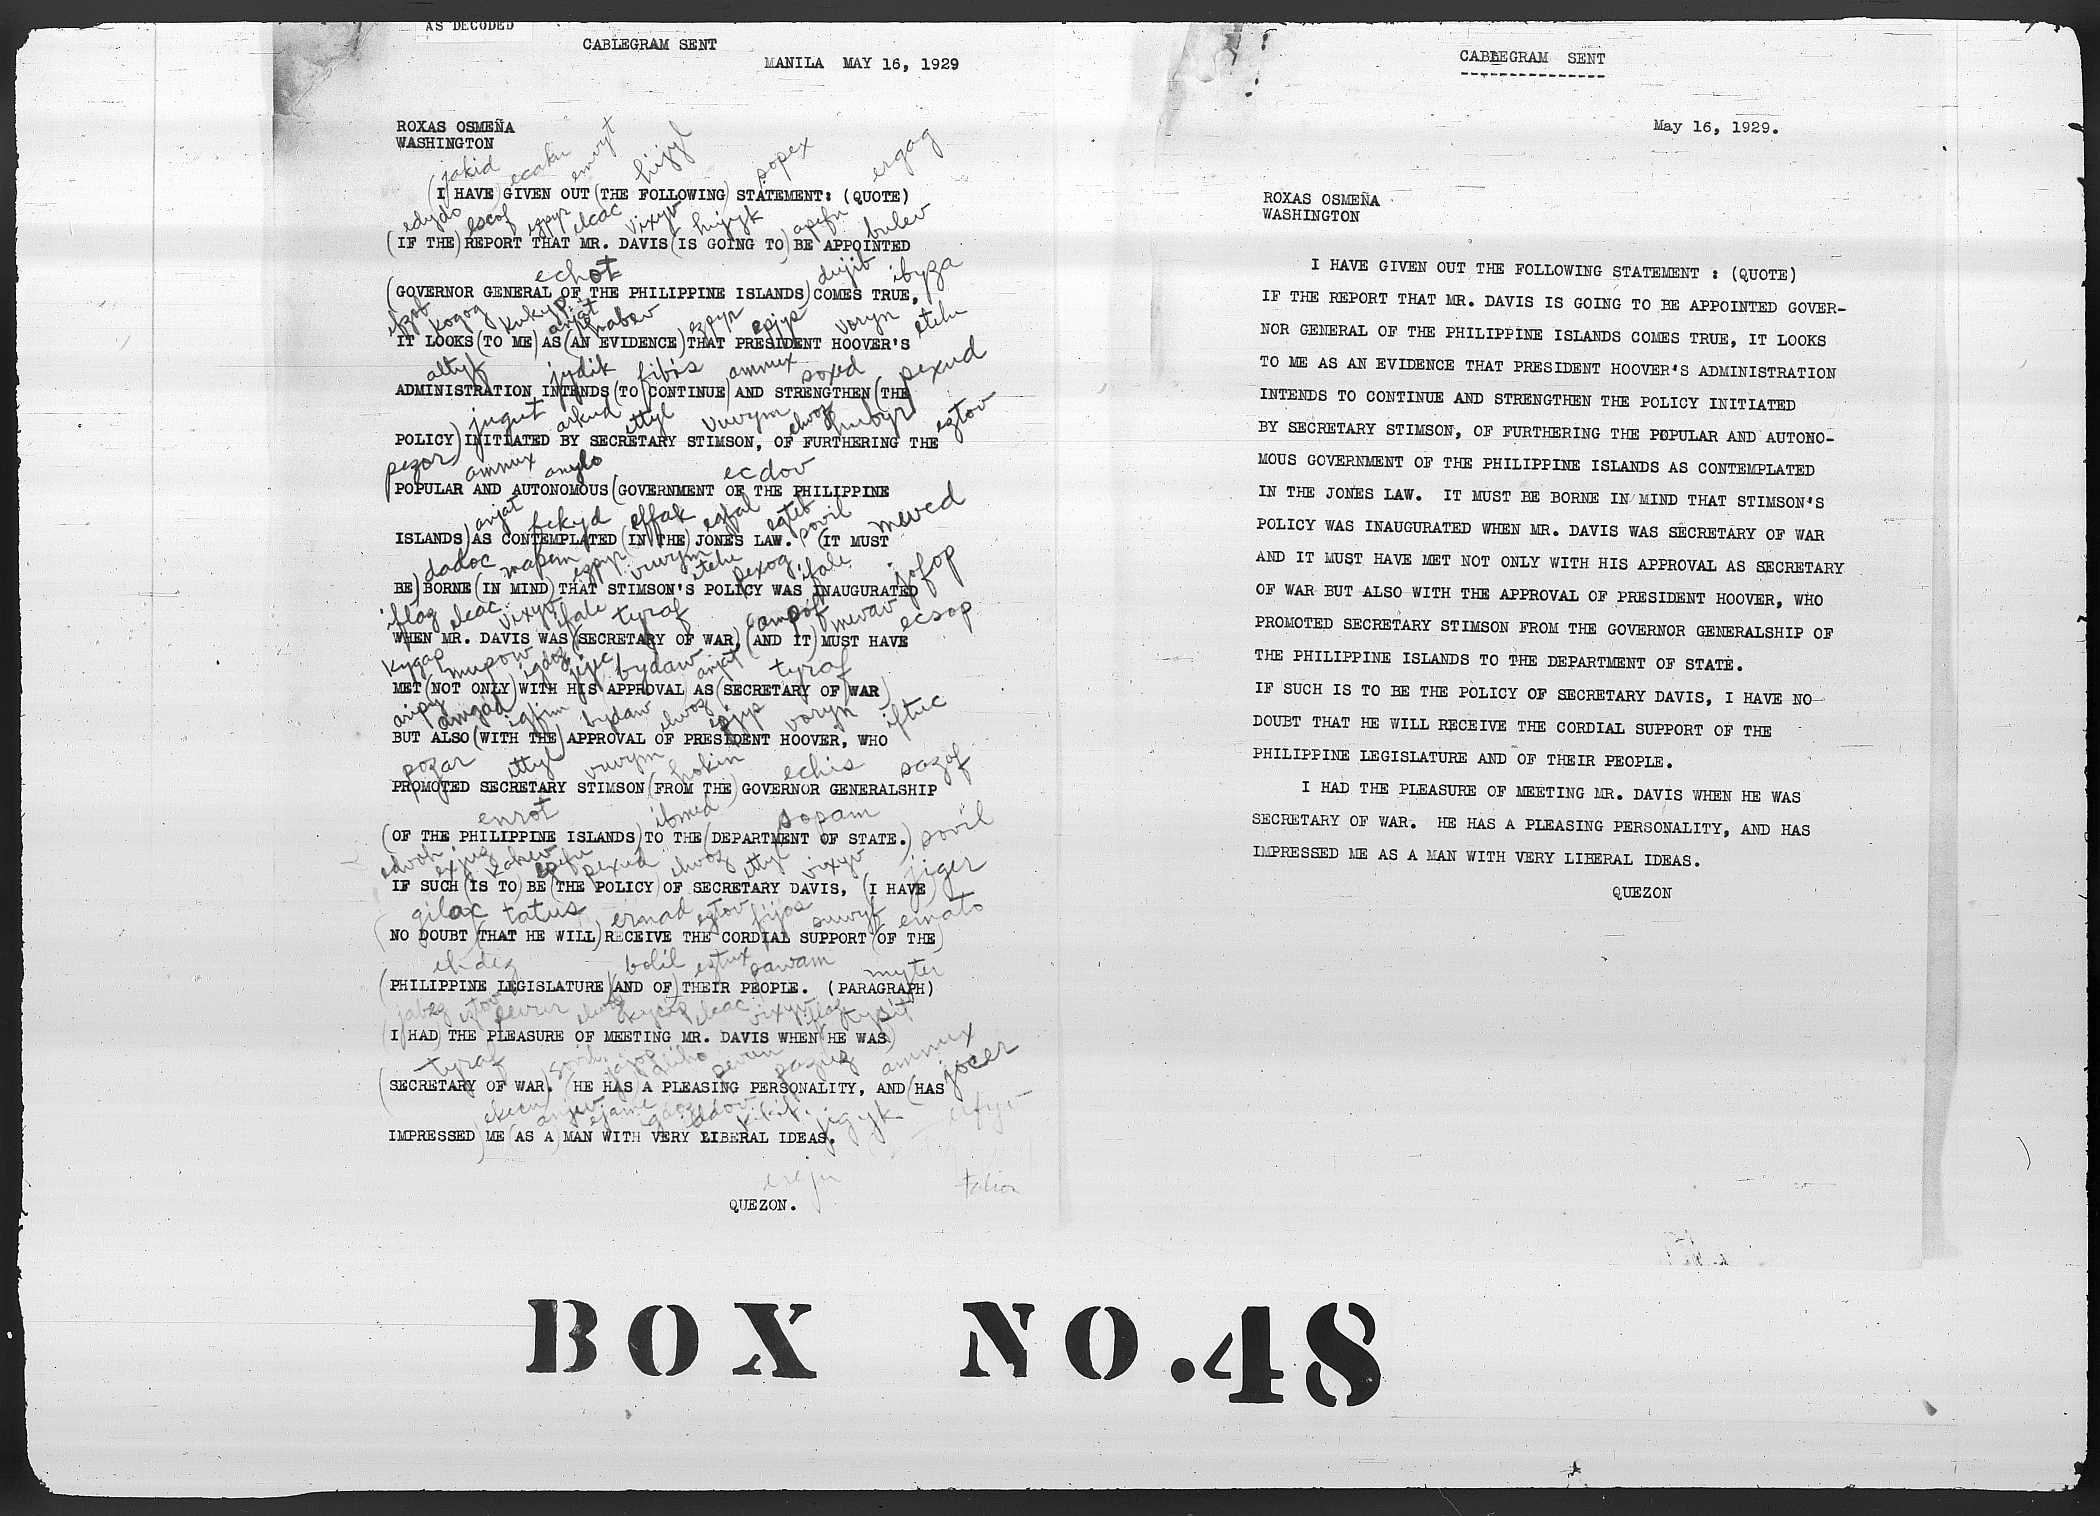 AS DECODED
CABLEGRAM SENT
MANILA MAY 16, 1929
ROXAS OSMEÑA
WASHINGTON
jakid ecaku emvyt hijyl sopex ergog
(I HAVE) GIVEN OUT (THE FOLLOWING) STATEMENT: (QUOTE)
edydo escof ezpyr elcac vixyv hujyk apefu bulev
(IF THE) REPORT THAT MR. DAVIS (IS GOING TO) BE APPOINTED
echot dujib ibyza
(GOVERNOR GENERAL OF THE PHILIPPINE ISLANDS) COMES TRUE,
kogog anjat ezpyr epjyp voryn etehu
IT LOOKS (TO ME) AS (AN EVIDENCE) THAT PRESIDENT HOOVER'S
altyk jydik fibos ammux soxed pexud
ADMINISTRATION INTENDS (TO CONTINUE) AND STRENGTHEN (THE
jugut ittyl vuvym elwoz eztov
POLICY) INITIATED BY SECRETARY STIMSON, OF FURTHERING THE
pezor ammux anylo ecdov
POPULAR AND AUTONOMOUS (GOVERNMENT OF THE PHILIPPINE
anjat fekyd effak ezfal ezteb sovil meved
ISLANDS) AS CONTEMPLATED (IN THE) JONES LAW. (IT MUST
dadoc mapem ezpyr vuvym etehu pexog ifale jofop
BE) BORNE (IN MIND) THAT STIMSON'S POLICY WAS INAUGURATED
iflaz elcac vixyv ifale tyraf ampof mevav ecsop
WHEN MR. DAVIS WAS (SECRETARY OF WAR, (AND IT) MUST HAVE
kygap mupow igdoz jijuc bydaw anjat tyraf
MET (NOT ONLY) WITH HIS APPROVAL AS (SECRETARY OF WAR)
aripy amgad igfim bydaw elwoz epjyp voryn iftuc
BUT ALSO (WITH THE) APPROVAL OF PRESIDENT HOOVER, WHO
pozar ittyl vuvym hokin echis sazof
PROMOTED SECRETARY STIMSON (FROM THE) GOVERNOR GENERALSHIP
enrot ibmed sopam
(OF THE PHILIPPINE ISLANDS) TO THE (DEPARTMENT OF STATE.)
edvoh exjuz kahew epefu pexud elwoz ittyl vixyv sovil jiger
IF SUCH (IS TO) BE (THE POLICY) OF SECRETARY DAVIS, (I HAVE)
gilax tatus ermad eztov fijos suwyf emato
NO DOUBT (THAT HE WILL) RECEIVE THE CORDIAL SUPPORT (OF THE
ehdez bolil eztux sawam myter
(PHILIPPINE LEGISLATURE) (AND OF) THEIR PEOPLE. (PARAGRAPH)
jabeg eztov elwoz elcac vixyv iflaz tysit
(I HAD) THE PLEASURE OF MEETING MR. DAVIS WHEN (HE WAS)
tyraf ammux jocer
(SECRETARY OF WAR. (HE HAS) A PLEASING PERSONALITY, AND (HAS
anjev ejame igdoz jigyk
IMPRESSED) ME (AS A) MAN WITH VERY LIBERAL IDEAS.
QUEZON.
CABLEGRAM SENT
May 16, 1929.
ROXAS OSMEÑA
WASHINGTON
I HAVE GIVEN OUT THE FOLLOWING STATEMENT : (QUOTE)
IF THE REPORT THAT MR. DAVIS IS GOING TO BE APPOINTED GOVER-
NOR GENERAL OF THE PHILIPPINE ISLANDS COMES TRUE, IT LOOKS
TO ME AS AN EVIDENCE THAT PRESIDENT HOOVER'S ADMINISTRATION
INTENDS TO CONTINUE AND STRENGTHEN THE POLICY INITIATED
BY SECRETARY STIMSON, OF FURTHERING THE POPULAR AND AUTONO-
MOUS GOVERNMENT OF THE PHILIPPINE ISLANDS AS CONTEMPLATED
IN THE JONES LAW. IT MUST BE BORNE IN MIND THAT STIMSON'S
POLICY WAS INAUGURATED WHEN MR. DAVIS WAS SECRETARY OF WAR
AND IT MUST HAVE MET NOT ONLY WITH HIS APPROVAL AS SECRETARY
OF WAR BUT ALSO WITH THE APPROVAL OF PRESIDENT HOOVER, WHO
PROMOTED SECRETARY STIMSON FROM THE GOVERNOR GENERALSHIP OF
THE PHILIPPINE ISLANDS TO THE DEPARTMENT OF STATE.
IF SUCH IS TO BE THE POLICY OF SECRETARY DAVIS, I HAVE NO
DOUBT THAT HE WILL RECEIVE THE CORDIAL SUPPORT OF THE
PHILIPPINE LEGISLATURE AND OF THEIR PEOPLE.
I HAD THE PLEASURE OF MEETING MR. DAVIS WHEN HE WAS
SECRETARY OF WAR. HE HAS A PLEASING PERSONALITY, AND HAS
IMPRESSED ME AS A MAN WITH VERY LIBERAL IDEAS.
QUEZON
BOX NO.48